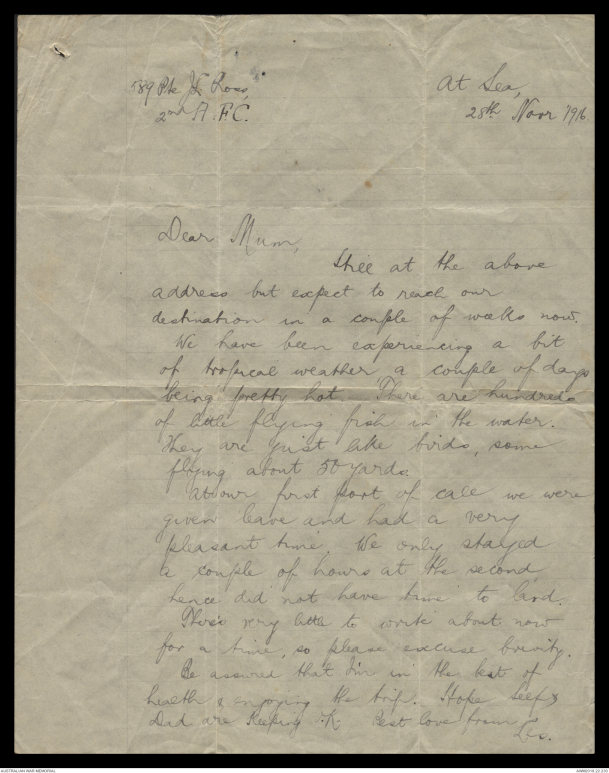 789 Pte J L Ross,
2nd A.F.C.
At Sea,
28th Novr 1916
Dear Mum,
Still at the above
address but expect to reach our
destination in a couple of weeks now.
We have been experiencing a bit
of tropical weather a couple of days
being pretty hot. There are hundreds
of little flying fish in the water.
They are just like birds, some
flying about 50 yards.
At our first port of call we were
given leave and had a very
pleasant time. We only stayed
a couple of hours at the second,
hence did not have time to land.
There's very little to write about now
for a time, so please excuse brevity.
Be assured that I'm in the best of
health & enjoying the trip. Hope &
Dad are keeping OK Best love from
Les.
AUSTRALIAN WAR MEMORIAL